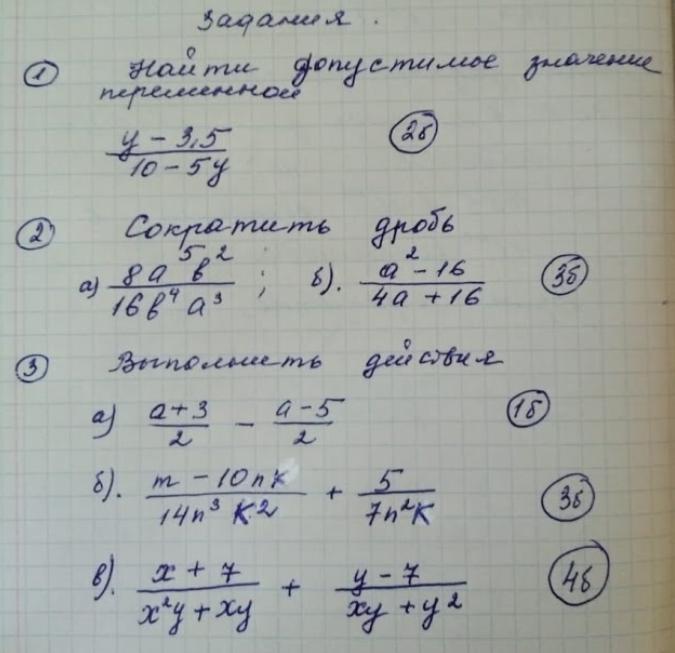 Задания.
① Найти допустимое значение
переменной
(y - 3,5)/(10 - 5y) 2б
② Сократить дробь
а) (8a⁵b²)/(16b⁴a³) ; б). (a² - 16)/(4a + 16) 3б
③ Выполнить действия
а) (a + 3)/2 - (a - 5)/2 1б
б). (m - 10nk)/(14n³k²) + 5/(7n²k) 3б
в). (x + 7)/(x²y + xy) + (y - 7)/(xy + y²) 4б